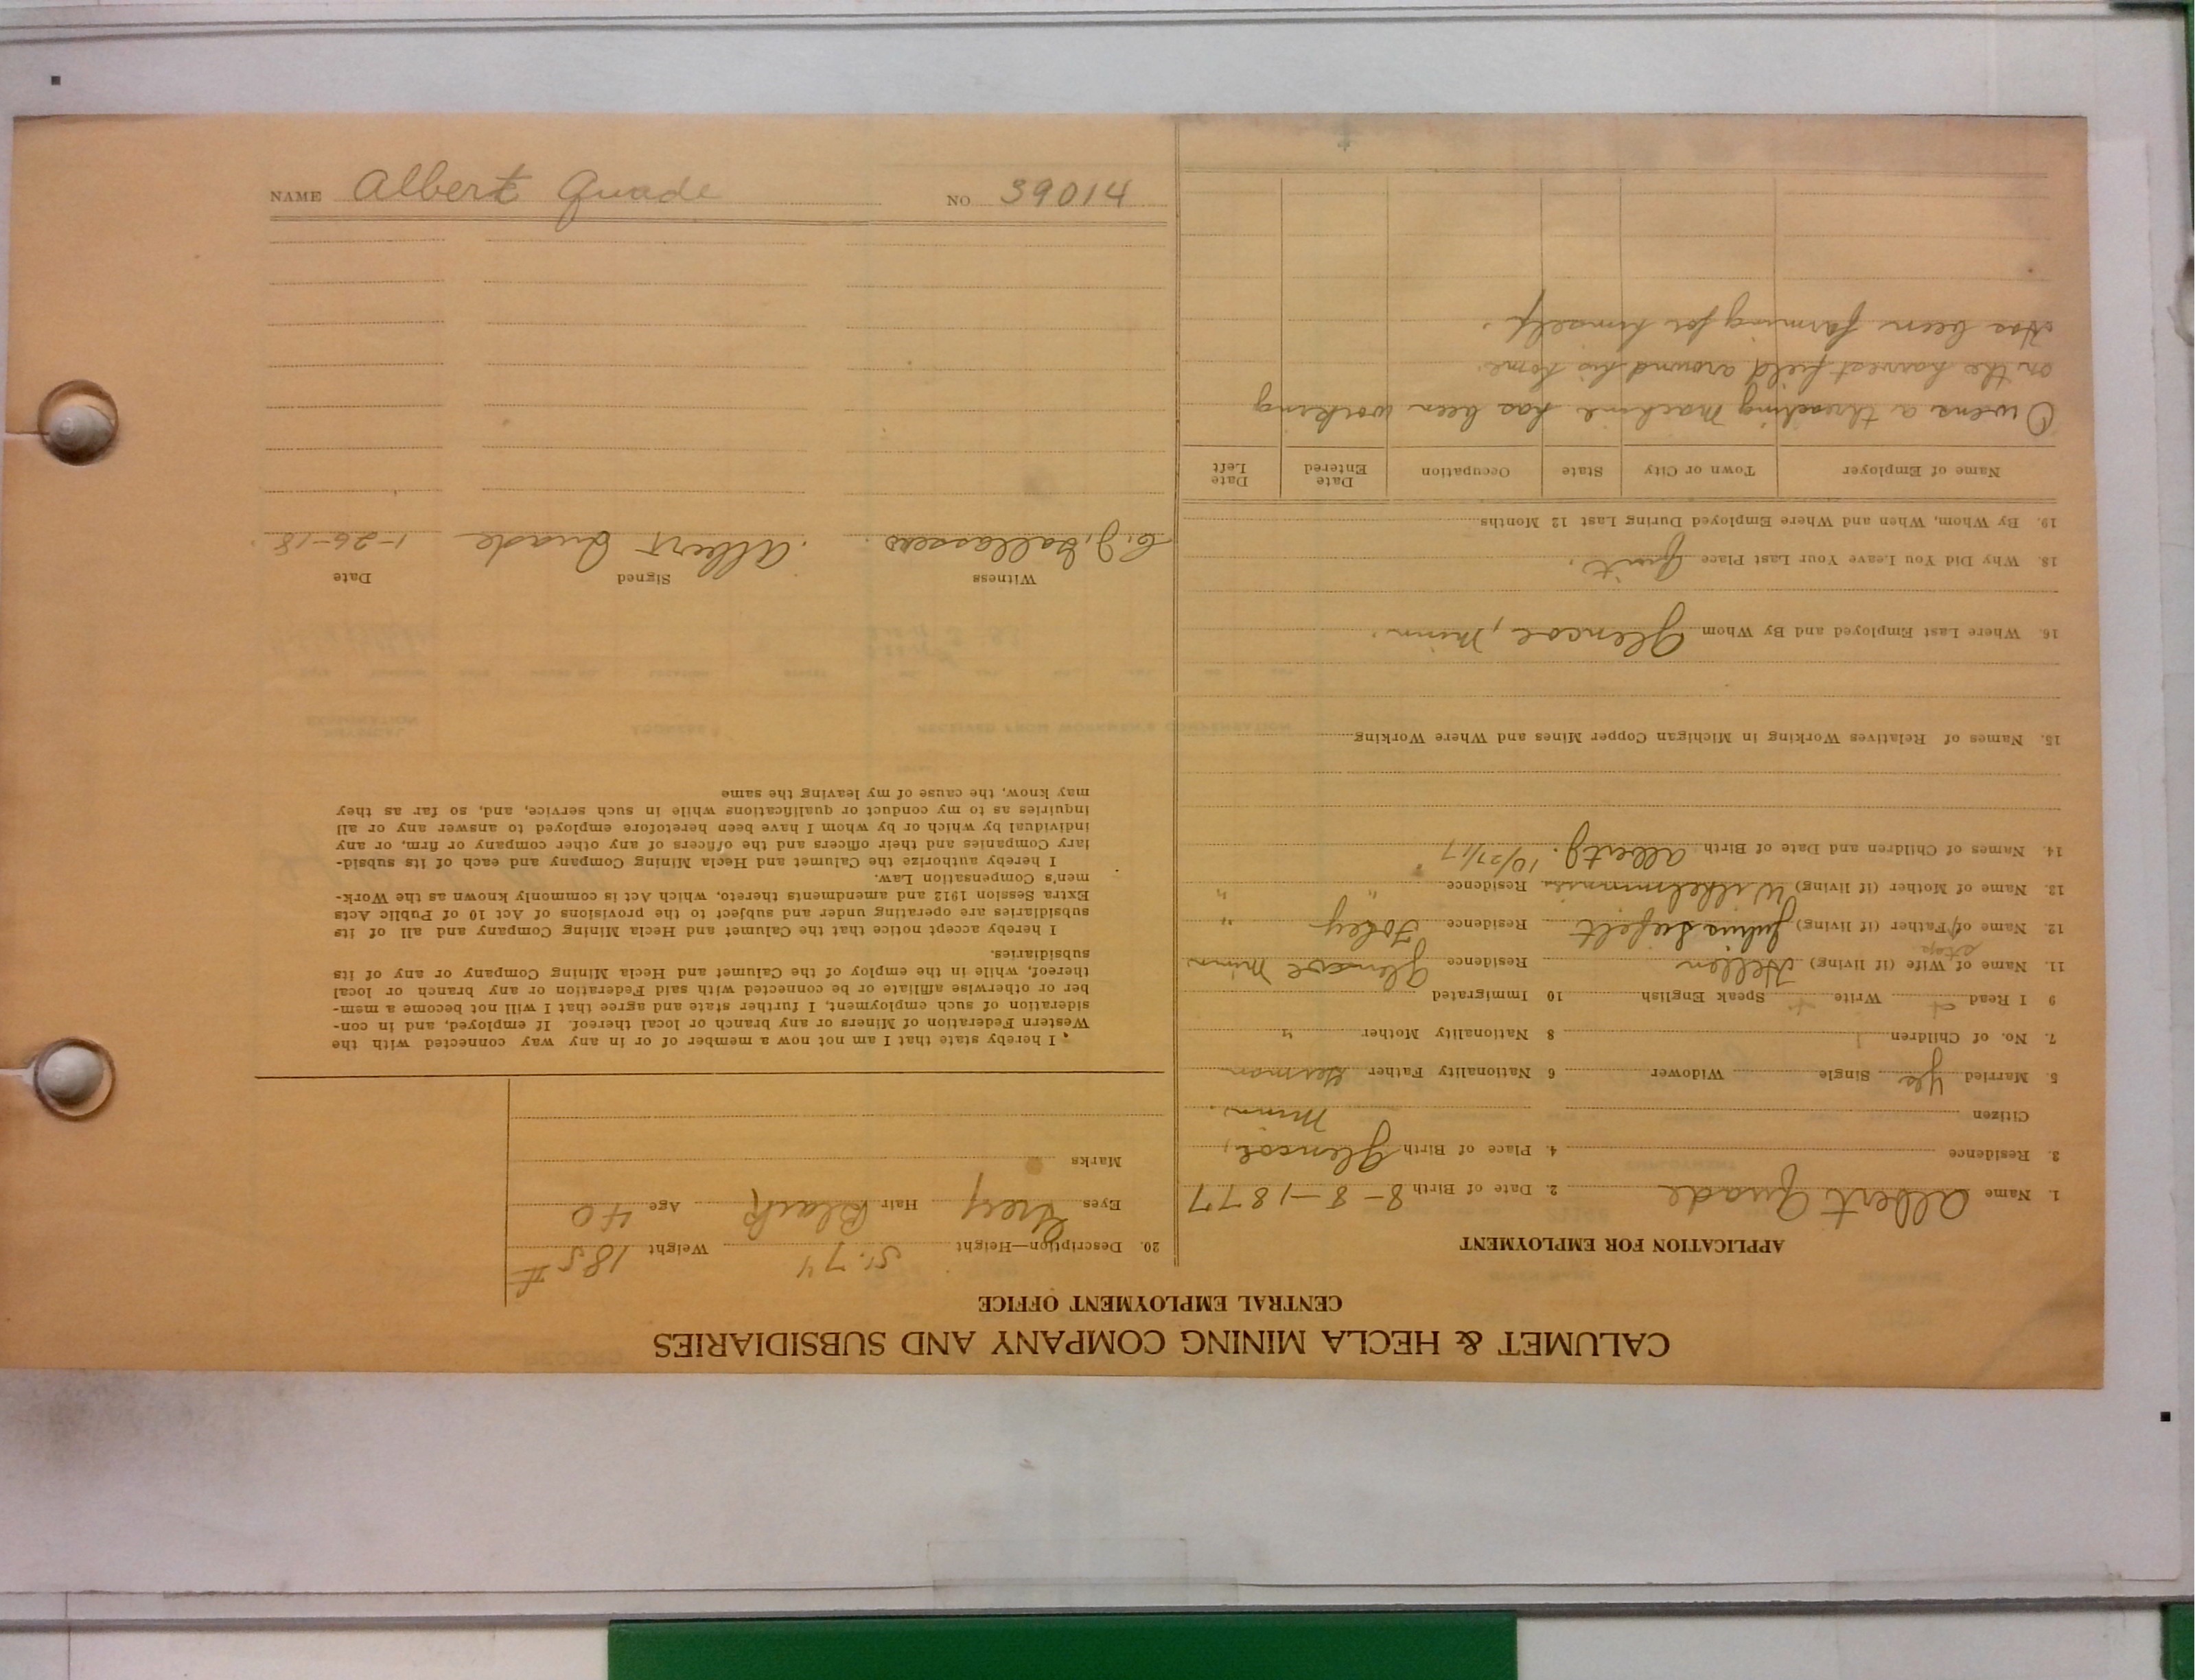 CALUMET & HECLA MINING COMPANY AND SUBSIDIARIES
CENTRAL EMPLOYMENT OFFICE
APPLICATION FOR EMPLOYMENT
1. Name Albert Quade 2. Date of Birth 8-8-1877
3. Residence 4. Place of Birth Glencoe,
Citizen Minn.
5. Married Yes Single Widower 6 Nationality Father German
7. No. of Children 1 8 Nationality Mother "
9 I Read + Write + Speak English 10 Immigrated
11. Name of Wife (if living) Hellen Residence Glencoe Minn
step
12. Name of Father (if living) Julius Residence Foley "
13. Name of Mother (if living) Wilhelmina Residence " "
14. Names of Children and Date of Birth Albert J. 10/27/17
15. Names of Relatives Working in Michigan Copper Mines and Where Working
16. Where Last Employed and By Whom Glencoe, Minn.
18. Why Did You Leave Your Last Place Quit.
19. By Whom, When and Where Employed During Last 12 Months
Name of Employer Town or City State Occupation Date Entered Date Left
Owens a threshing machine has been working
on the harvest field around his home.
Has been farming for himself.
20. Description—Height 5.7¼ Weight 185#
Eyes Grey Hair Black Age 40
Marks
I hereby state that I am not now a member of or in any way connected with the
Western Federation of Miners or any branch or local thereof. If employed, and in con-
sideration of such employment, I further state and agree that I will not become a mem-
ber or otherwise affiliate or be connected with said Federation or any branch or local
thereof, while in the employ of the Calumet and Hecla Mining Company or any of its
subsidiaries.
I hereby accept notice that the Calumet and Hecla Mining Company and all of its
subsidiaries are operating under and subject to the provisions of Act 10 of Public Acts
Extra Session 1912 and amendments thereto, which Act is commonly known as the Work-
men's Compensation Law.
I hereby authorize the Calumet and Hecla Mining Company and each of its subsid-
iary Companies and their officers and the officers of any other company or firm, or any
individual by which or by whom I have been heretofore employed to answer any or all
inquiries as to my conduct or qualifications while in such service, and, so far as they
may know, the cause of my leaving the same
Witness Signed Date
C. J. Albert Quade 1-26-18
NAME Albert Quade NO 39014